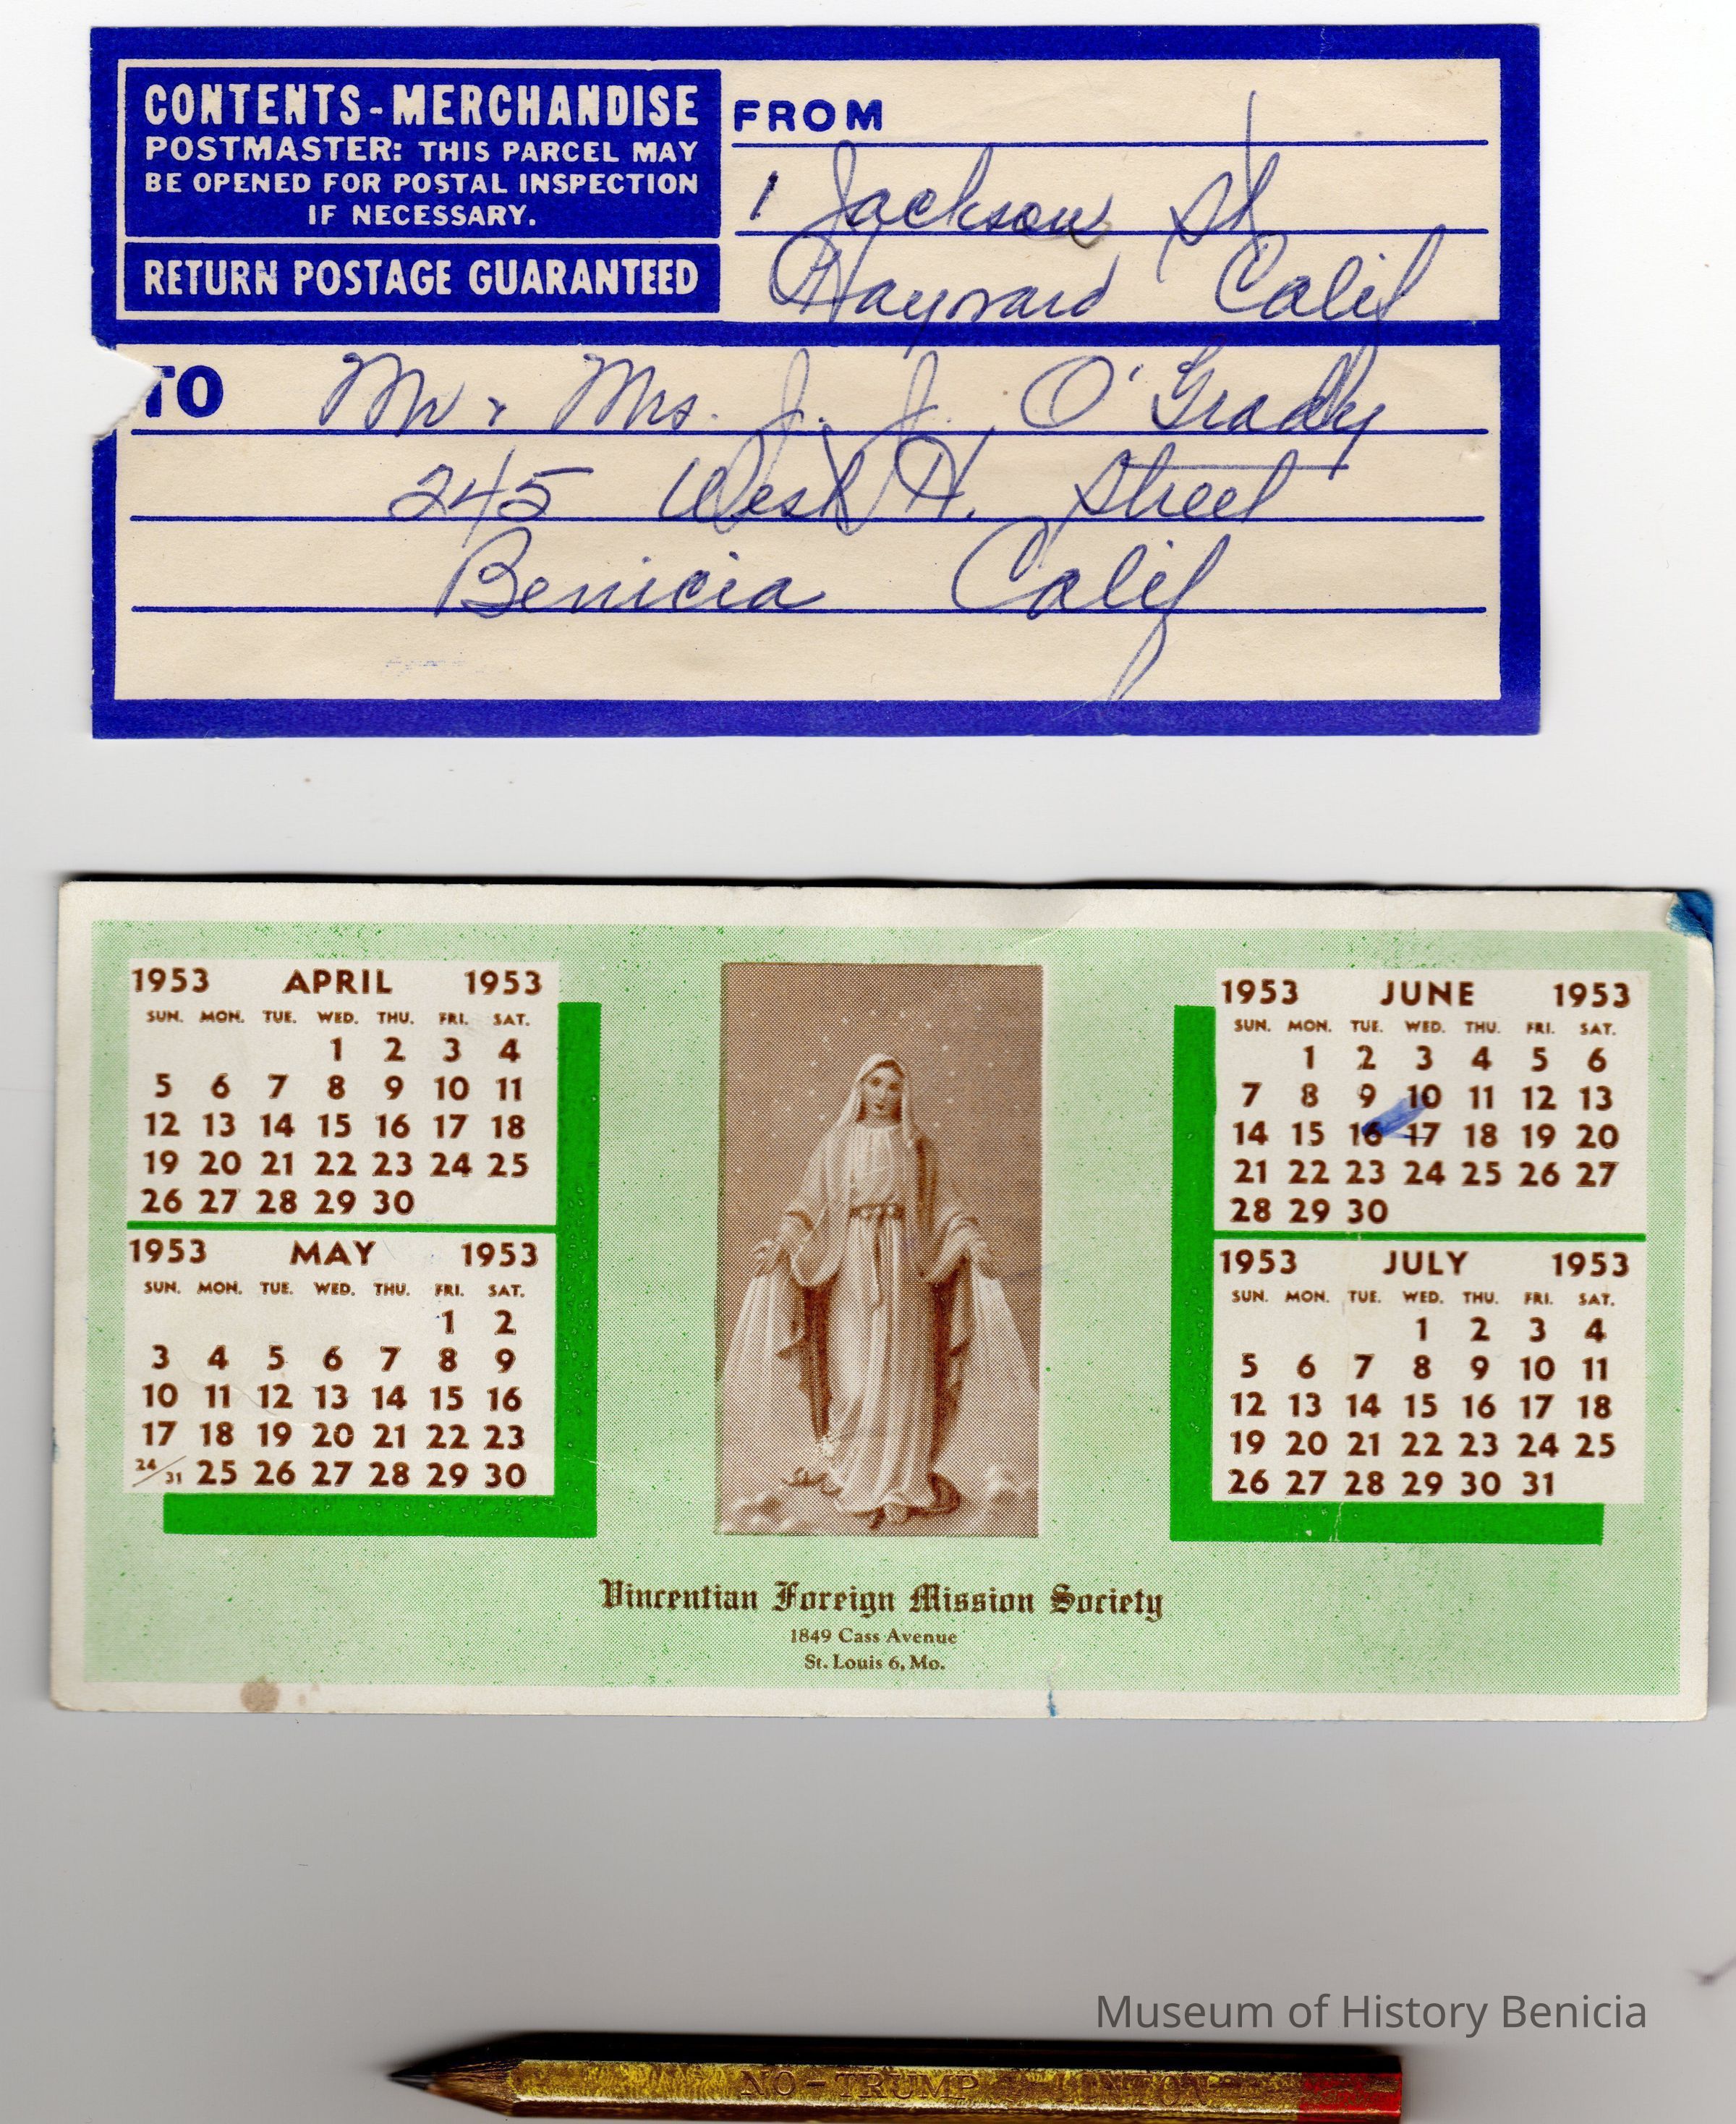 CONTENTS-MERCHANDISE
POSTMASTER: THIS PARCEL MAY
BE OPENED FOR POSTAL INSPECTION
IF NECESSARY.
RETURN POSTAGE GUARANTEED
FROM
1 Jackson St
Hayward Calif
TO Mr & Mrs. J. J. O'Grady
245 West H. Street
Benicia Calif
1953 APRIL 1953
SUN. MON. TUE. WED. THU. FRI. SAT.
1 2 3 4
5 6 7 8 9 10 11
12 13 14 15 16 17 18
19 20 21 22 23 24 25
26 27 28 29 30
1953 MAY 1953
SUN. MON. TUE. WED. THU. FRI. SAT.
1 2
3 4 5 6 7 8 9
10 11 12 13 14 15 16
17 18 19 20 21 22 23
24/31 25 26 27 28 29 30
1953 JUNE 1953
SUN. MON. TUE. WED. THU. FRI. SAT.
1 2 3 4 5 6
7 8 9 10 11 12 13
14 15 16 17 18 19 20
21 22 23 24 25 26 27
28 29 30
1953 JULY 1953
SUN. MON. TUE. WED. THU. FRI. SAT.
1 2 3 4
5 6 7 8 9 10 11
12 13 14 15 16 17 18
19 20 21 22 23 24 25
26 27 28 29 30 31
Vincentian Foreign Mission Society
1849 Cass Avenue
St. Louis 6, Mo.
Museum of History Benicia
NO-TRUMP LINTON